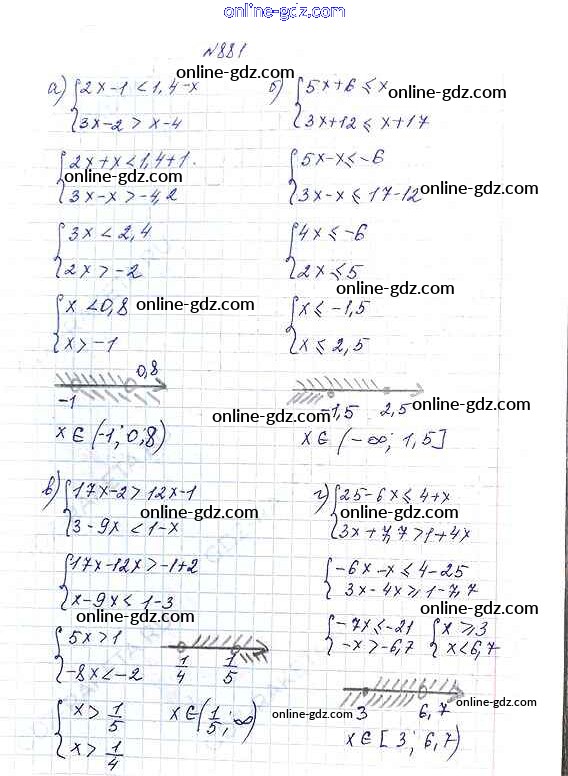 online-gdz.com
№881
online-gdz.com
а) { 2x-1 < 1,4-x
3x-2 > x-4
online-gdz.com
{ 2x+x < 1,4+1
3x-x > -4,2
online-gdz.com
{ 3x < 2,4
2x > -2
online-gdz.com
{ x < 0,8
x > -1
online-gdz.com
0,8
-1
x ∈ (-1; 0,8)
online-gdz.com
б) { 5x+6 ≤ x
3x+12 ≤ x+17
online-gdz.com
{ 5x-x ≤ -6
3x-x ≤ 17-12
online-gdz.com
{ 4x ≤ -6
2x ≤ 5
online-gdz.com
{ x ≤ -1,5
x ≤ 2,5
online-gdz.com
-1,5 2,5
online-gdz.com
x ∈ (-∞; 1,5]
в) { 17x-2 > 12x-1
3-9x < 1-x
online-gdz.com
{ 17x-12x > -1+2
x-9x < 1-3
online-gdz.com
{ 5x > 1
-8x < -2
1/4 1/5
{ x > 1/5
x > 1/4
x ∈ (1/5; ∞)
online-gdz.com
г) { 25-6x ≤ 4+x
3x+7,7 > 1+4x
online-gdz.com
{ -6x-x ≤ 4-25
3x-4x ≥ 1-7,7
online-gdz.com
{ -7x ≤ -21 { x ≥ 3
-x > -6,7 x < 6,7
online-gdz.com
3 6,7
online-gdz.com
x ∈ [3; 6,7)
online-gdz.com